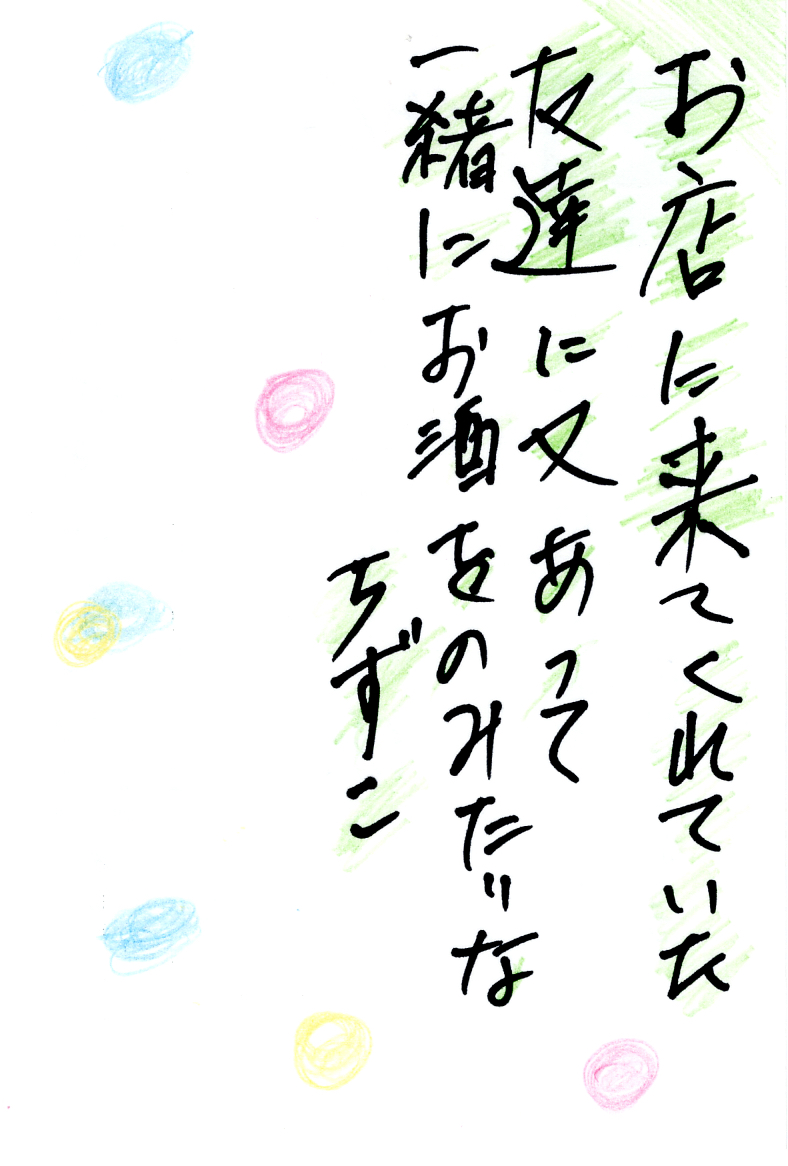 お店に来てくれていた
友達に又あって
一緒にお酒をのみたいな
ちずこ